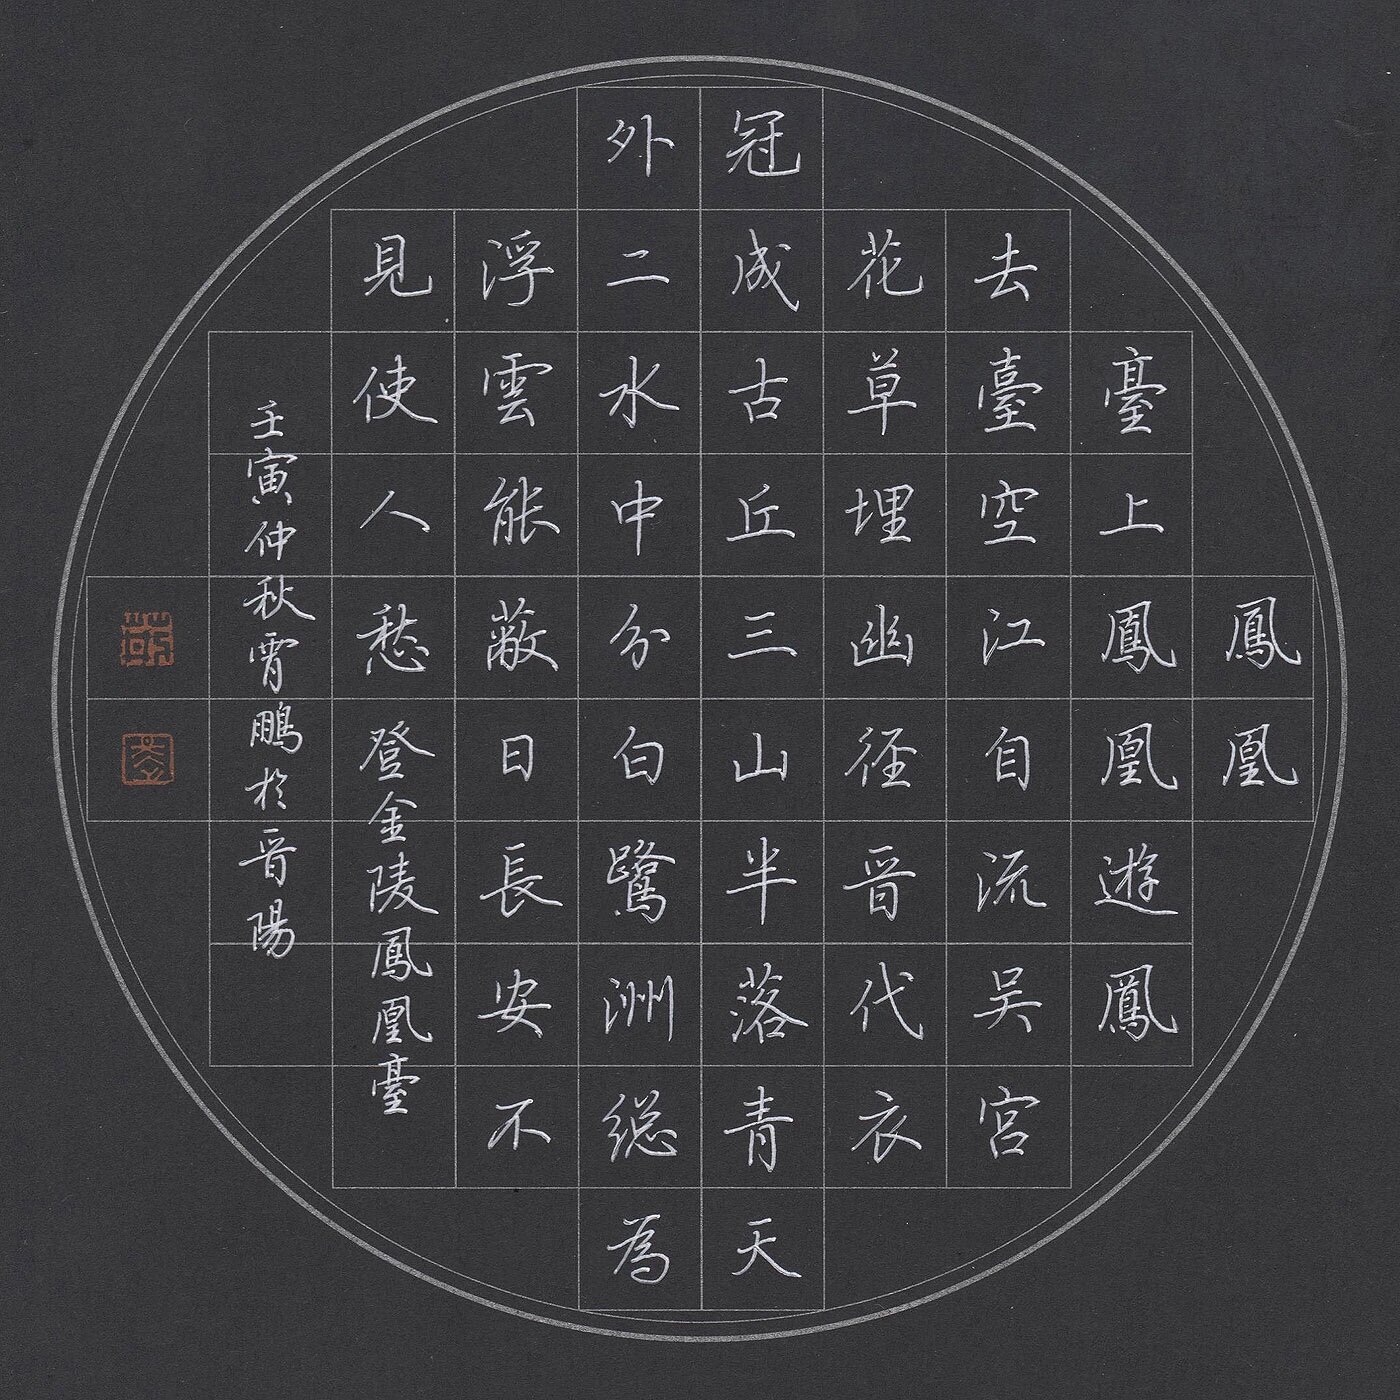 鳳凰
臺上鳳凰遊鳳
去臺空江自流吴宮
花草埋幽径晋代衣
冠成古丘三山半落青天
外二水中分白鷺洲総為
浮雲能蔽日長安不
見使人愁登金陵鳳凰臺
壬寅仲秋霄鵬於晋陽